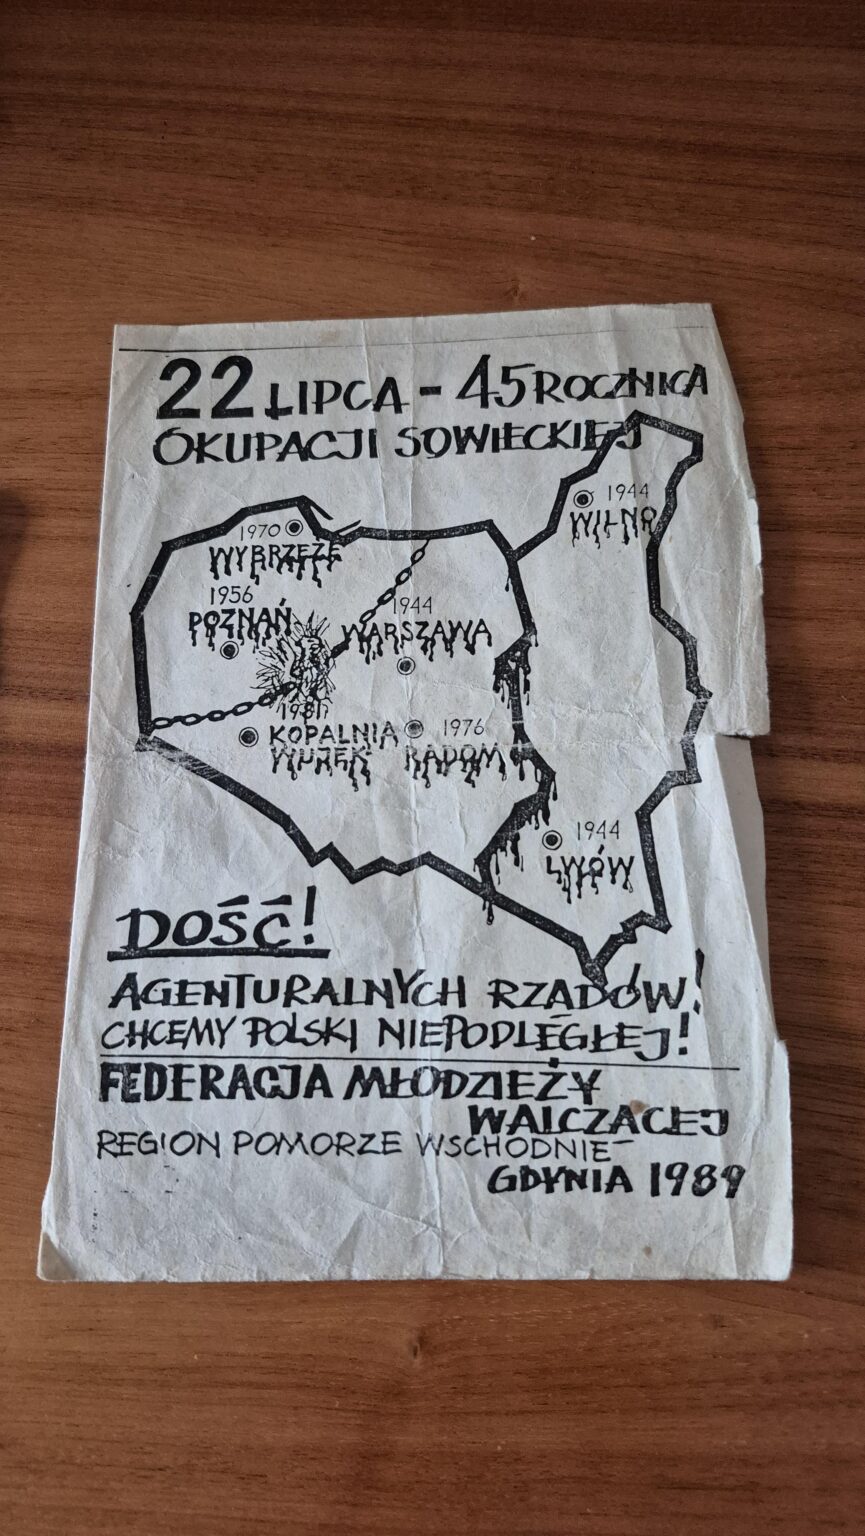 22 LIPCA - 45 ROCZNICA
OKUPACJI SOWIECKIEJ
1944
WILNO
1970
WYBRZEŻE
1956
POZNAŃ
1944
WARSZAWA
1981
KOPALNIA
WUJEK
1976
RADOM
1944
LWÓW
DOŚĆ!
AGENTURALNYCH RZĄDÓW!
CHCEMY POLSKI NIEPODLEGŁEJ!
FEDERACJA MŁODZIEŻY
WALCZĄCEJ
REGION POMORZE WSCHODNIE
GDYNIA 1989